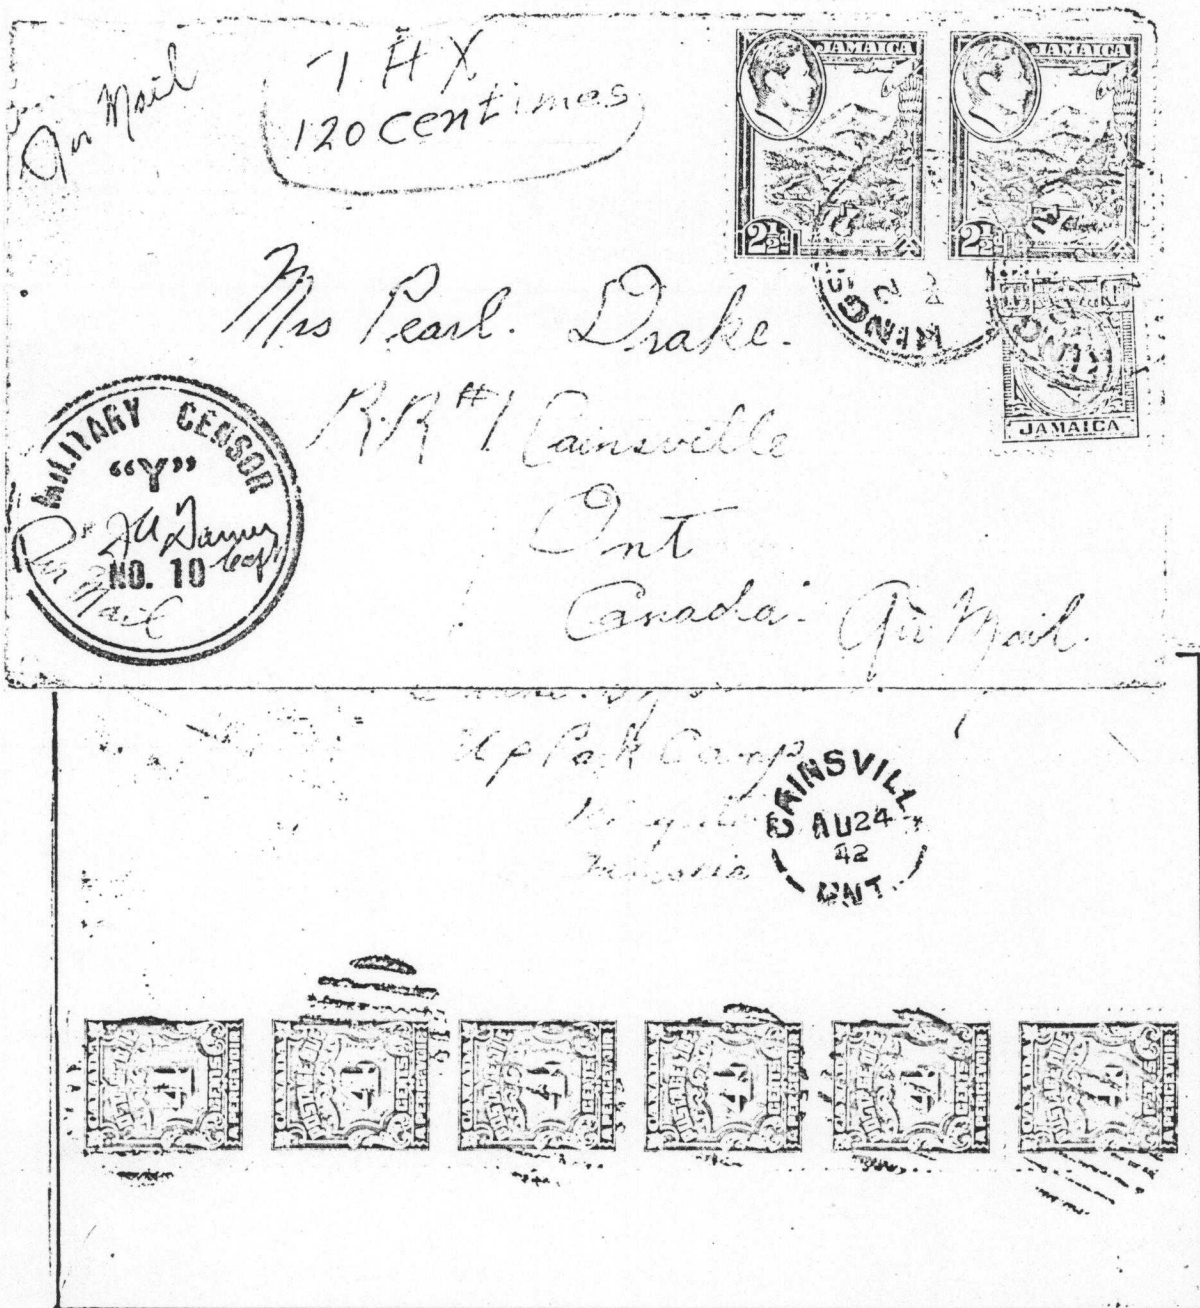 Air Mail
TAX
120 centimes
JAMAICA
JAMAICA
2½d
2½d
KINGS
KING
JAMAICA
Mrs Pearl. Drake.
R.R #1 Cainsville
Ont
Canada.
Air Mail
MILITARY CENSOR
"Y"
Capt
NO. 10
Air Mail
Up Park Camp
Jamaica
CAINSVILL
AU 24
42
ONT
CANADA POSTAGE DUE 4 CENTS A PERCEVOIR
CANADA POSTAGE DUE 4 CENTS A PERCEVOIR
CANADA POSTAGE DUE 4 CENTS A PERCEVOIR
CANADA POSTAGE DUE 4 CENTS A PERCEVOIR
CANADA POSTAGE DUE 4 CENTS A PERCEVOIR
CANADA POSTAGE DUE 4 CENTS A PERCEVOIR